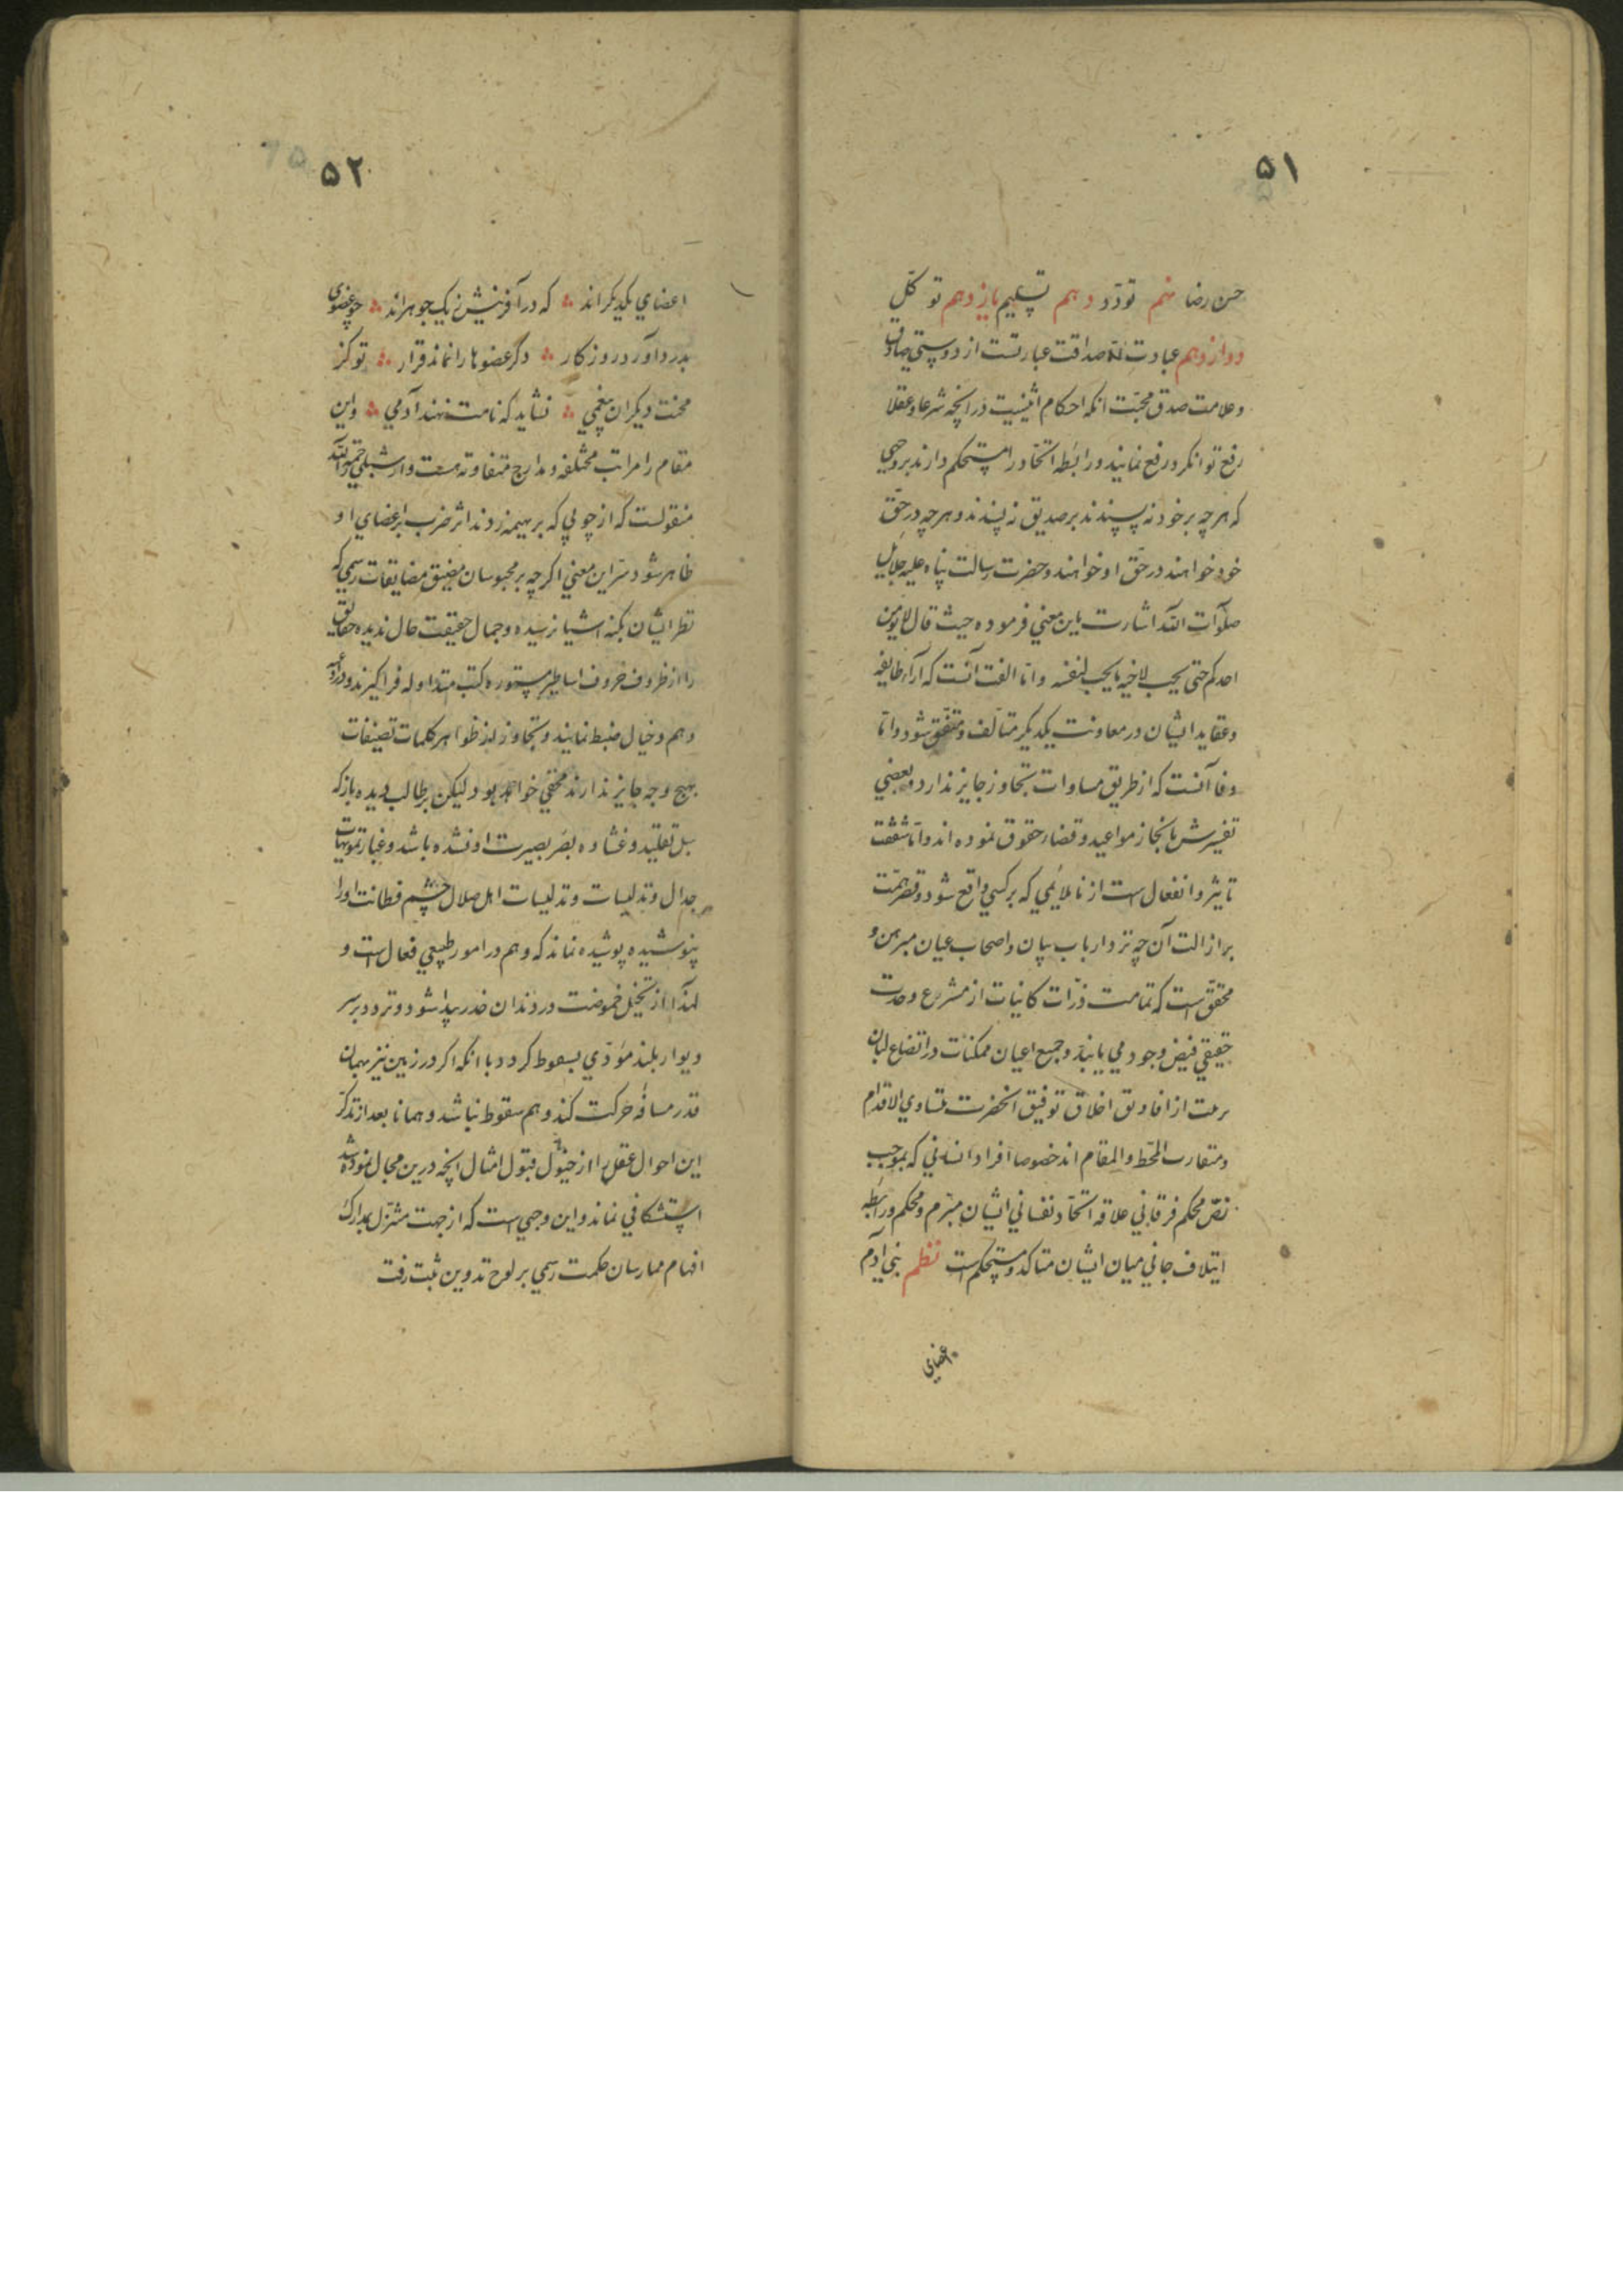 ۵۱
حسن رضا نهم تودّد دهم تسلیم یازدهم توکّل
دوازدهم عبادت امّا صداقت عبارتست از دوستی صادق
و علامت صدق محبّت انکه احکام اثنینیت در انچه شرعا و عقلا
رفع توانکرد رفع نمایند و رابطه اتحّاد را مستحکم دارند بروجهی
که هرچه بر خود نه پسندند بر صدیق نه پسندند و هرچه در حقّ
خود خواهند در حقّ او خواهند و حضرت رسالت پناه علیه جلایل
صلوآت اللّه اشارت باین معنی فرموده حیث قال لا یومن
احدکم حتی یحب لاخیه ما یحب لنفسه و امّا الفت آنست که آراء طایفه
و عقاید ایشان در معاونت یکدیکر متألف و متّفق شود و امّا
وفا آنست که از طریق مساوات تجاوز جایز ندارد و بعضی
تفسیرش بانجاز مواعید و قضاء حقوق نموده اند و امّا شفقت
تاثیر و انفعال است از ناملایمی که بر کسی واقع شود و قصر همّت
بر ازالت آن چه نزد ارباب بیان و اصحاب عیان مبرهن و
محقّق است که تمامت ذرّات کاینات از مشرع وحدت
حقیقی فیض وجود می یابند و جمیع اعیان ممکنات در ارتضاع لبان
رحمت از افاویق اخلاق توفیق انحضرت متساوی الاقدام
و متقارب المحّط و المقام اند خصوصا افراد انسانی که بموجب
نصّ محکم فرقانی علاقه اتحّاد نفسانی ایشان مبرّم و محکم و رابطه
ایتلاف جانی میان ایشان متاکد و مستحکم است نظم بنی آدم
اعضای
۵۲
اعضای یکدیکراند که در آفرینش ز یک جوهراند چو عضوی
بدرد آورد روزکار دکر عضوها را نماند قرار تو کز
محنت دیکران بیغمی نشاید که نامت نهند آدمی و این
مقام را مراتب مختلفه و مدارج متفاوته هست و از شبلی رحمه اللّه
منقولست که از چوبی که بر بهیمه زدند اثر ضرب بر اعضای او
ظاهر شود سرّ این معنی اکرچه بر محبوسان مضیق مضایقات رسمی که
نظر ایشان بکنه اشیا نرسیده و جمال حقیقت حال ندیده حقایق
را از ظروف حروف اساطیر مستوره کتب متداوله فراکیرند و در
وهم و خیال ضبط نمایند و تجاوز از ظواهر کلمات تصنیفات
بهیج وجه جایز ندارند مخفی خواهد بود و لیکن بر طالب دیده باز که
سبل تقلید و غشاوه بصر بصیرت او نشده باشد و غبار تمویهات
جدال و تدلیسات و تدلیسات اهل ضلال چشم فطانت او را
پنوشیده پوشیده نماند که وهم در امور طبیعی فعال است و
لهذا از تخیّل حموضت در دندان خدر پیدا شود و تردد بر سر
دیوار بلند مؤدّی بسقوط کردد با انکه اکر در زمین نیز بهمان
قدر مسافه حرکت کند وهم سقوط نباشد و همانا بعد از تذکر
این احوال عقل را از قبول امثال انچه درین مجال نموده شد
استنکافی نماند و این وجهی است که از جهت متنزّل بمدارک
افهام ممارسان حکمت رسمی بر لوح تدوین ثبت رفت